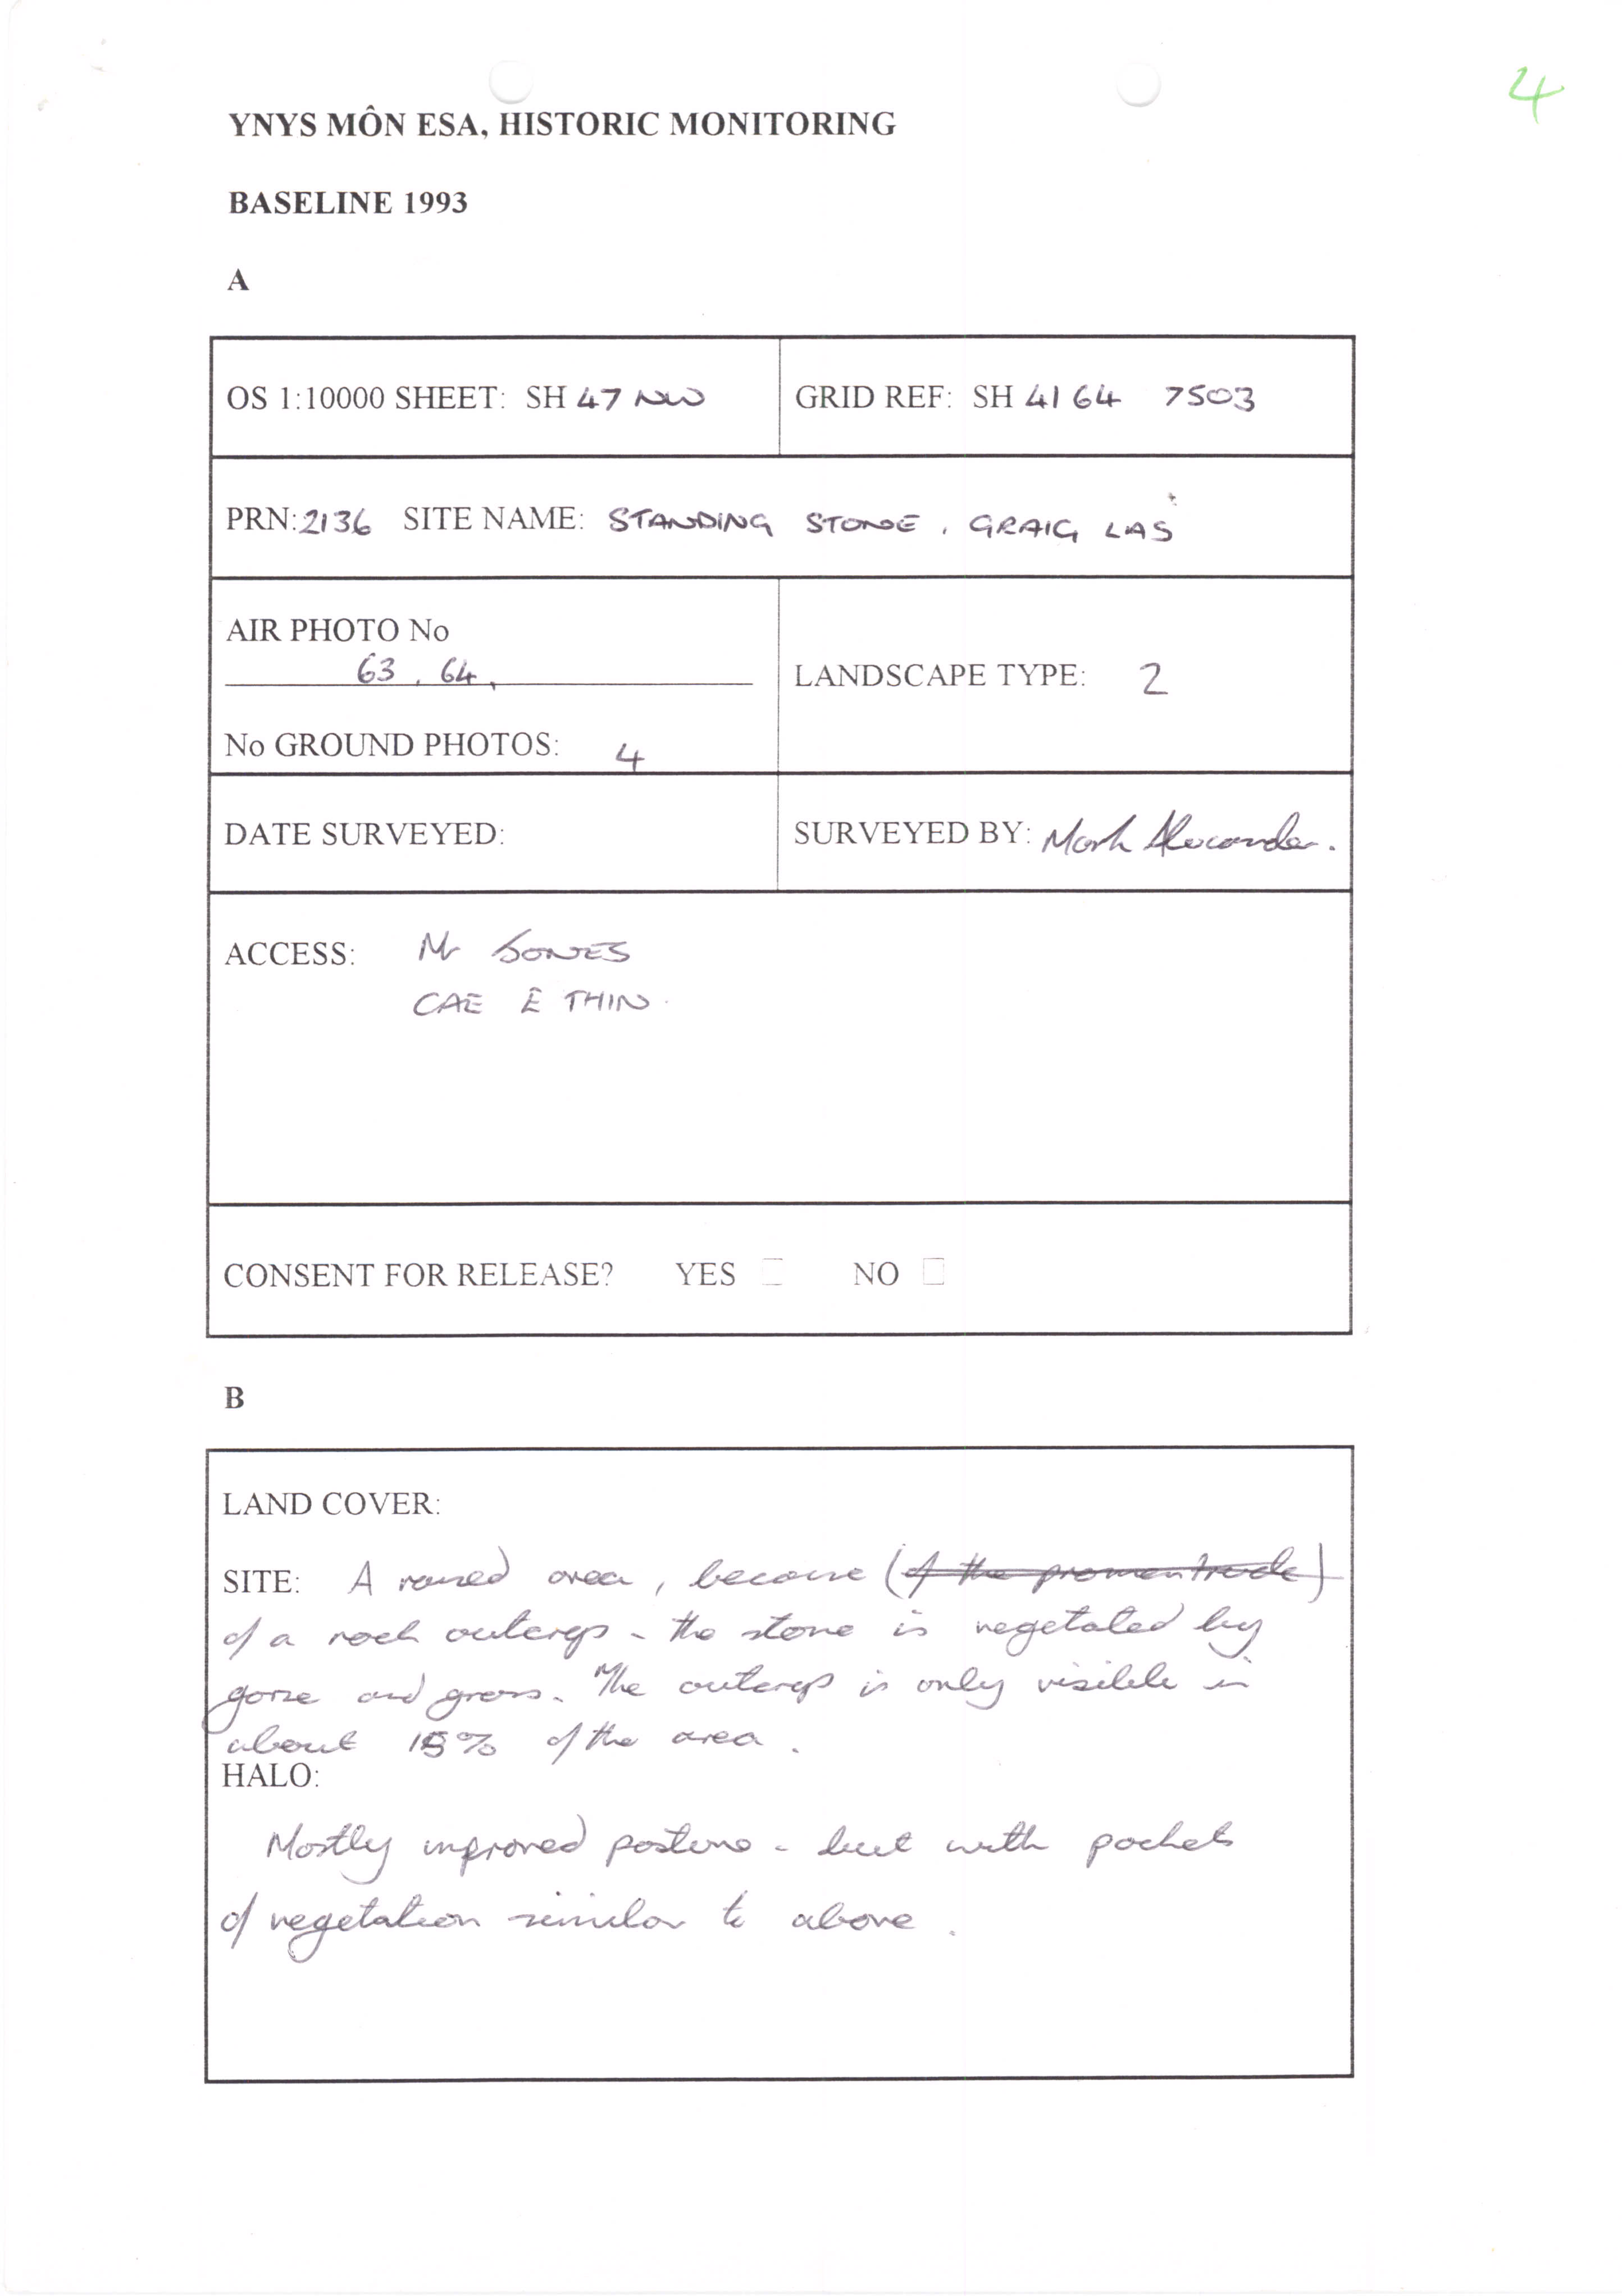 4
YNYS MÔN ESA, HISTORIC MONITORING
BASELINE 1993
A
OS 1:10000 SHEET: SH 47 NW
GRID REF: SH 4164 7503
PRN: 2136 SITE NAME: STANDING STONE, GRAIG LAS
AIR PHOTO No
63, 64,
LANDSCAPE TYPE: 2
No GROUND PHOTOS: 4
DATE SURVEYED:
SURVEYED BY: Mark Alexander.
ACCESS: Mr JONES
CAE E THIN.
CONSENT FOR RELEASE? YES NO
B
LAND COVER:
SITE: A raised area, because (of the)
of a rock outcrop - the stone is vegetated by
gorse and grass. The outcrop is only visible in
about 15% of the area.
HALO:
Mostly improved pasture - but with pockets
of vegetation similar to above.